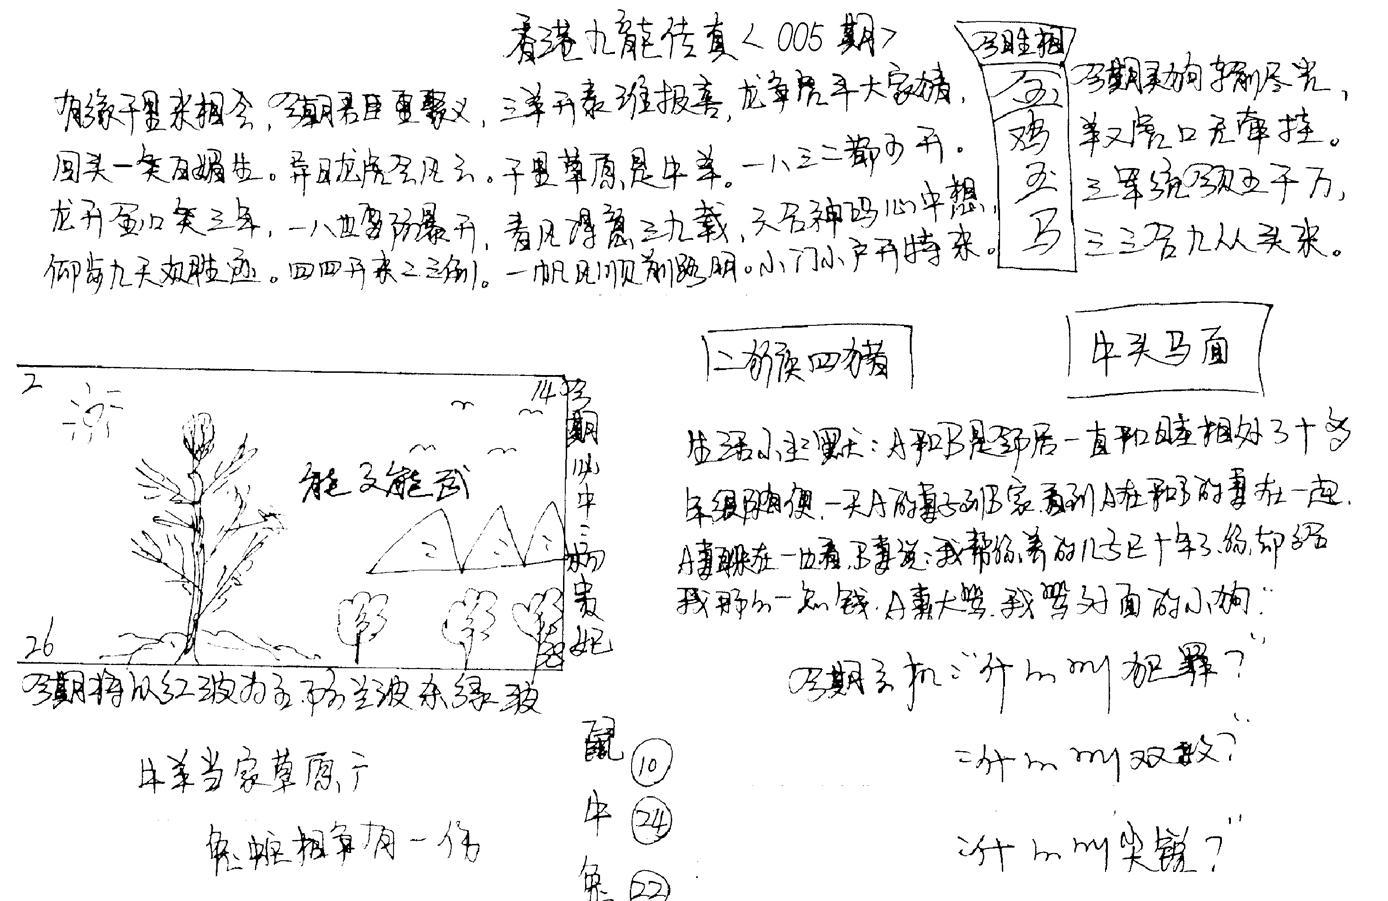 香港九龍传真<005期>
有缘千里来相会,今期君臣重聚义,三羊开泰难报喜,龙争虎斗大家猜,
回头一笑百媚生。异日龙虎会风云。千里草原是牛羊。一八三二都可开。
龙开金口笑三年,一八四野防暴开,春风得意三九载,天合神码心中想,
仰首九天双胜迹。四四开来二三例。一帆风顺前路明。小门小户开特来。
今期生相
金
鸡
玉
马
今期灵狗转前尽光,
羊又虎口无牵挂。
三军统领五千万,
三三合九从头来。
二猴四猪
牛头马面
2
14
26
能文能武
今期必中:杨贵妃
今期特以红波为主,不防兰波杀绿波
牛羊当家草原广
兔蛇相争有一伤
鼠 10
牛 24
兔 22
生活小幽默:A和B是邻居一直和睦相处了十多
年,一天A的妻子到B家看到A在和B的妻在一起,
A妻在一边看,B妻说:我帮你养的儿子已十年了,你却给
我那么一点钱。A妻大骂,我骂对面的小狗."
今期玄机:"什么叫犯罪?"
:"什么叫双数?"
:"什么叫尖锐?"